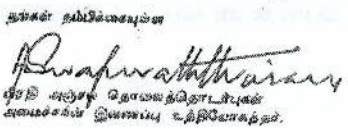 தங்கள் நம்பிக்கையுள்ள
பிரதி அஞ்சல் தொலைத்தொடர்புகள்
அமைச்சின் இணைப்பு உத்தியோகத்தர்.